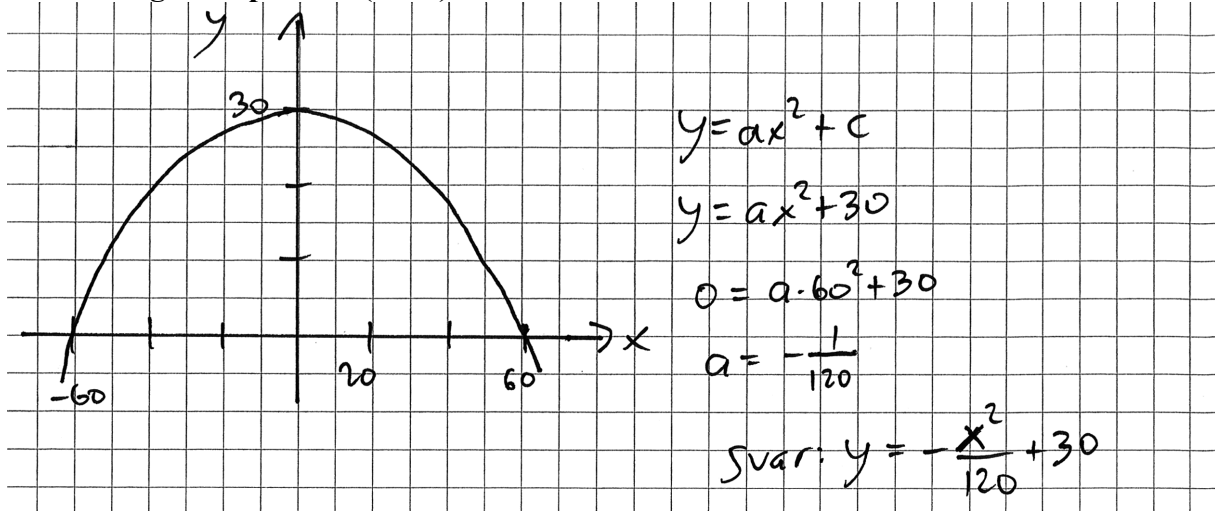 y
30
x
-60
20
60
y = ax² + c
y = ax² + 30
0 = a·60² + 30
a = -1/120
Svar: y = -x²/120 + 30